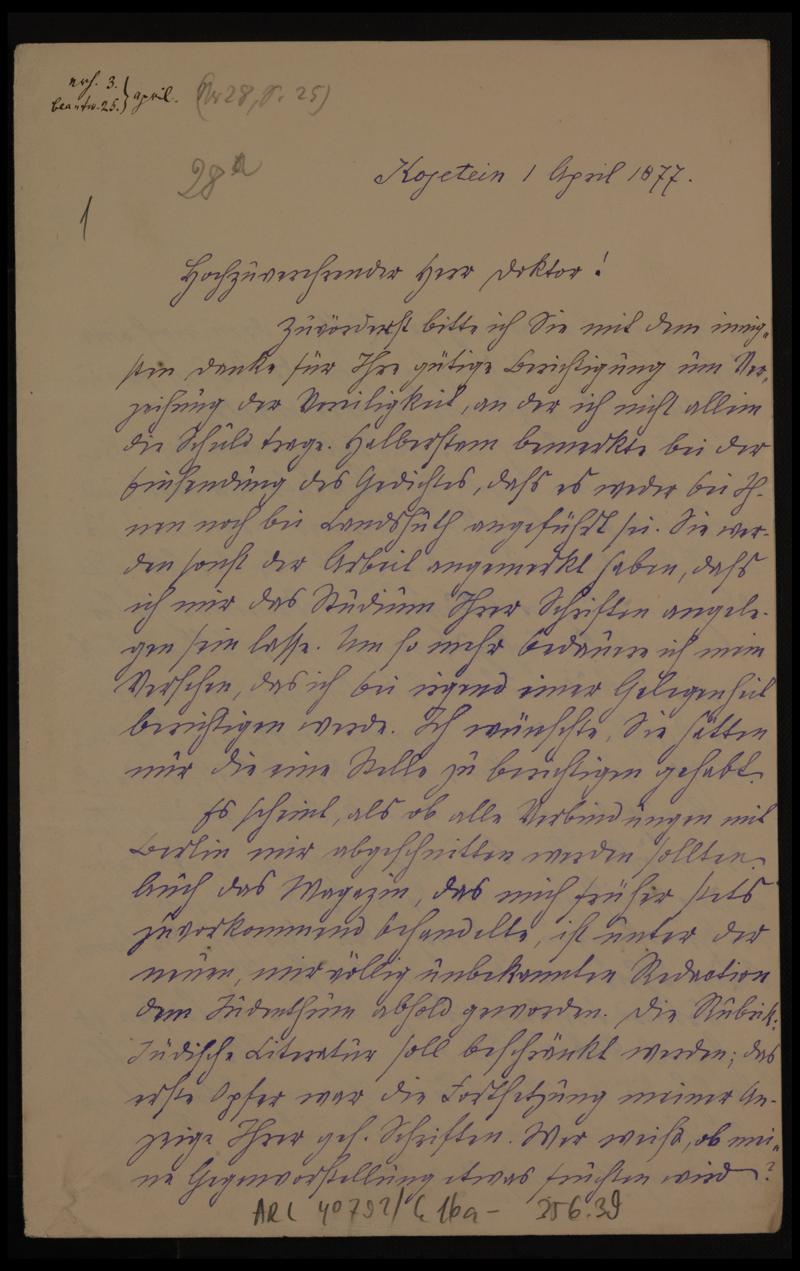 erh. 3.
beantw. 25. } april. (Nr 28, S. 25)
28a
Kojetein 1 April 1877.
1
Hochzuverehrender Herr Doktor!
Zuvörderst bitte ich Sie mit dem innig-
sten Danke für Ihre gütige Berichtigung um Ver-
zeihung der Voreiligkeit, an der ich nicht allein
die Schuld trage. Halberstam bemerkte bei der
Einsendung des Gedichtes, daß es weder bei Ih-
nen noch bei Landshuth angeführt sei. Sie wer-
den sonst der Arbeit angemerkt haben, daß
ich mir das Studium Ihrer Schriften angele-
gen sein lasse. Um so mehr bedauere ich mein
Versehen, das ich bei irgend einer Gelegenheit
berichtigen werde. Ich wünschte, Sie hätten
nur die eine Stelle zu berichtigen gehabt.
Es scheint, als ob alle Verbindungen mit
Berlin mir abgeschnitten werden sollten.
Auch das Magazin, das mich früher stets
zuvorkommend behandelte, ist unter der
neuen, mir völlig unbekannten Redaction
dem Judenthum abhold geworden. Die Rubrik:
Jüdische Literatur soll beschränkt werden; das
erste Opfer war die Fortsetzung meiner An-
zeige Ihrer ges. Schriften. Wer weiß, ob mei-
ne Gegenvorstellung etwas fruchten wird?
ARC 4° 792/G 16a - 356.39